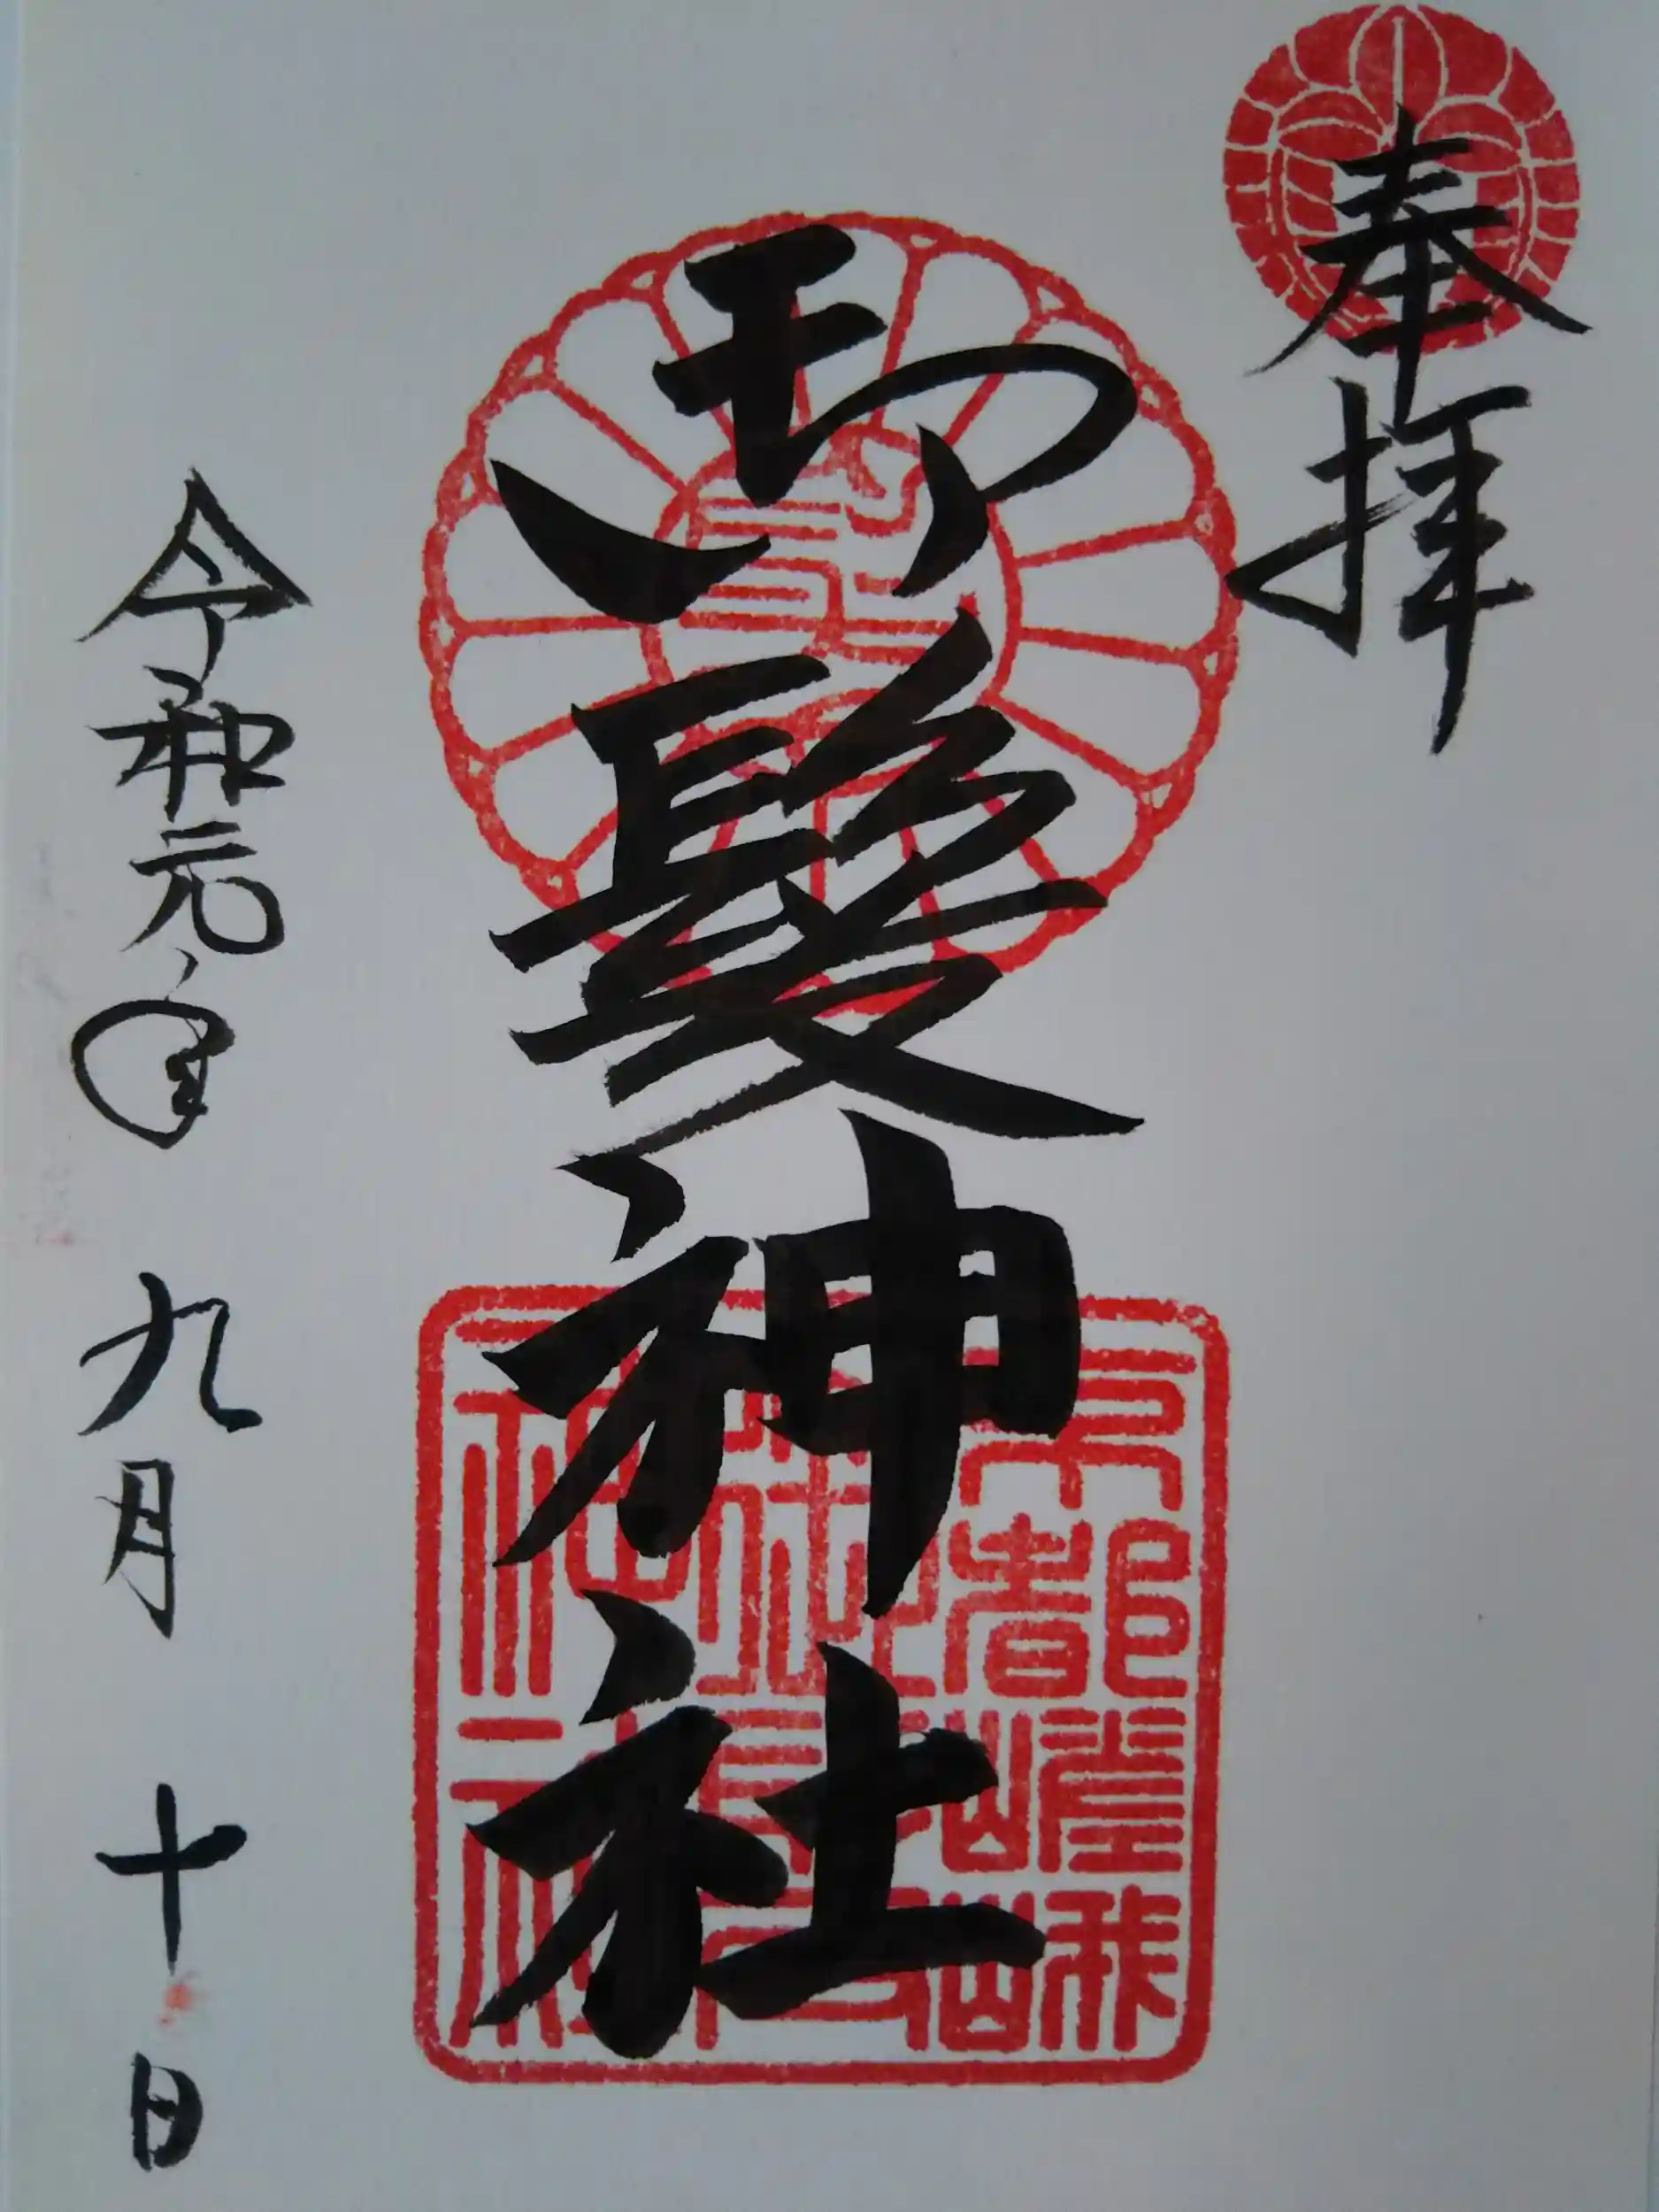 奉拝
御髪神社
京都嵯峨
令和元年 九月 十日